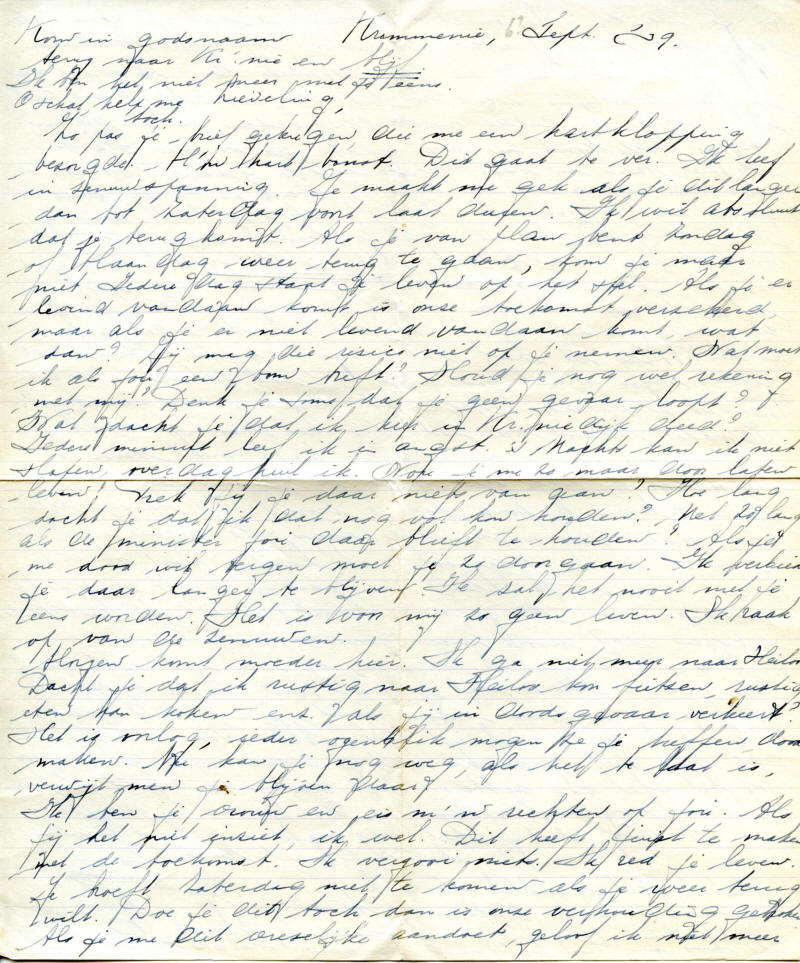 Kom in godsnaam Krommenie, 6 Sept. '39.
terug naar Kr.'nie en blijf
Ik ben het niet meer met je eens.
O schat, help me toch. Lieveling,
Zo pas je brief gekregen, die me een hartklopping
bezorgde. M'n hart bonst. Dit gaat te ver. Ik leef
in zenuwspanning. Je maakt me gek als je dit langer
dan tot Zaterdag voort laat duren. Ik wil absoluut
dat je terug komt. Als je van plan bent Zondag
of Maandag weer terug te gaan, kom je maar
niet. Iedere dag staat je leven op het spel. Als je er
levend vandaan komt is onze toekomst verzekerd,
maar als je er niet levend vandaan komt, wat
dan? Jij mag die risico niet op je nemen. Wat moet
ik als jou een bom treft? Houd je nog wel rekening
met mij? Denk je soms dat je geen gevaar loopt?
Wat dacht je dat ik hier in Kr.niedijk deed?
Iedere minuut leef ik in angst. 's Nachts kan ik niet
slapen, overdag huil ik. Wou je me zo maar door laten
leven? Trek jij je daar niets van aan? Hoe lang
dacht je dat ik dat nog vol kon houden? Net zo lang
als de minister jou daar blieft te houden? Als je
me dood wil tergen moet je zo doorgaan. Ik verbied
je daar langer te blijven. Ik zal het nooit met je
eens worden. Het is voor mij zo geen leven. Ik raak
op van de zenuwen.
Morgen komt moeder hier. Ik ga niet meer naar Heiloo
Dacht je dat ik rustig naar Heiloo kon fietsen, rustig
eten kan koken enz. als jij in doodsgevaar verkeert?
Het is oorlog, ieder ogenblik mogen ze je treffen, dood
maken. Nu kan je nog weg, als het te laat is,
verwijt men je blijven daar?
Ik ben je vrouw en eis m'n rechten op jou. Als
jij het niet inziet, ik wel. Dit heeft juist te maken
met de toekomst. Ik vergooi niets. Ik red je leven.
Je hoeft Zaterdag niet te komen als je weer terug
wilt. Doe je dit toch dan is onze verhouding gebroken
Als je me dit vreselijke aandoet, geloof ik niet meer